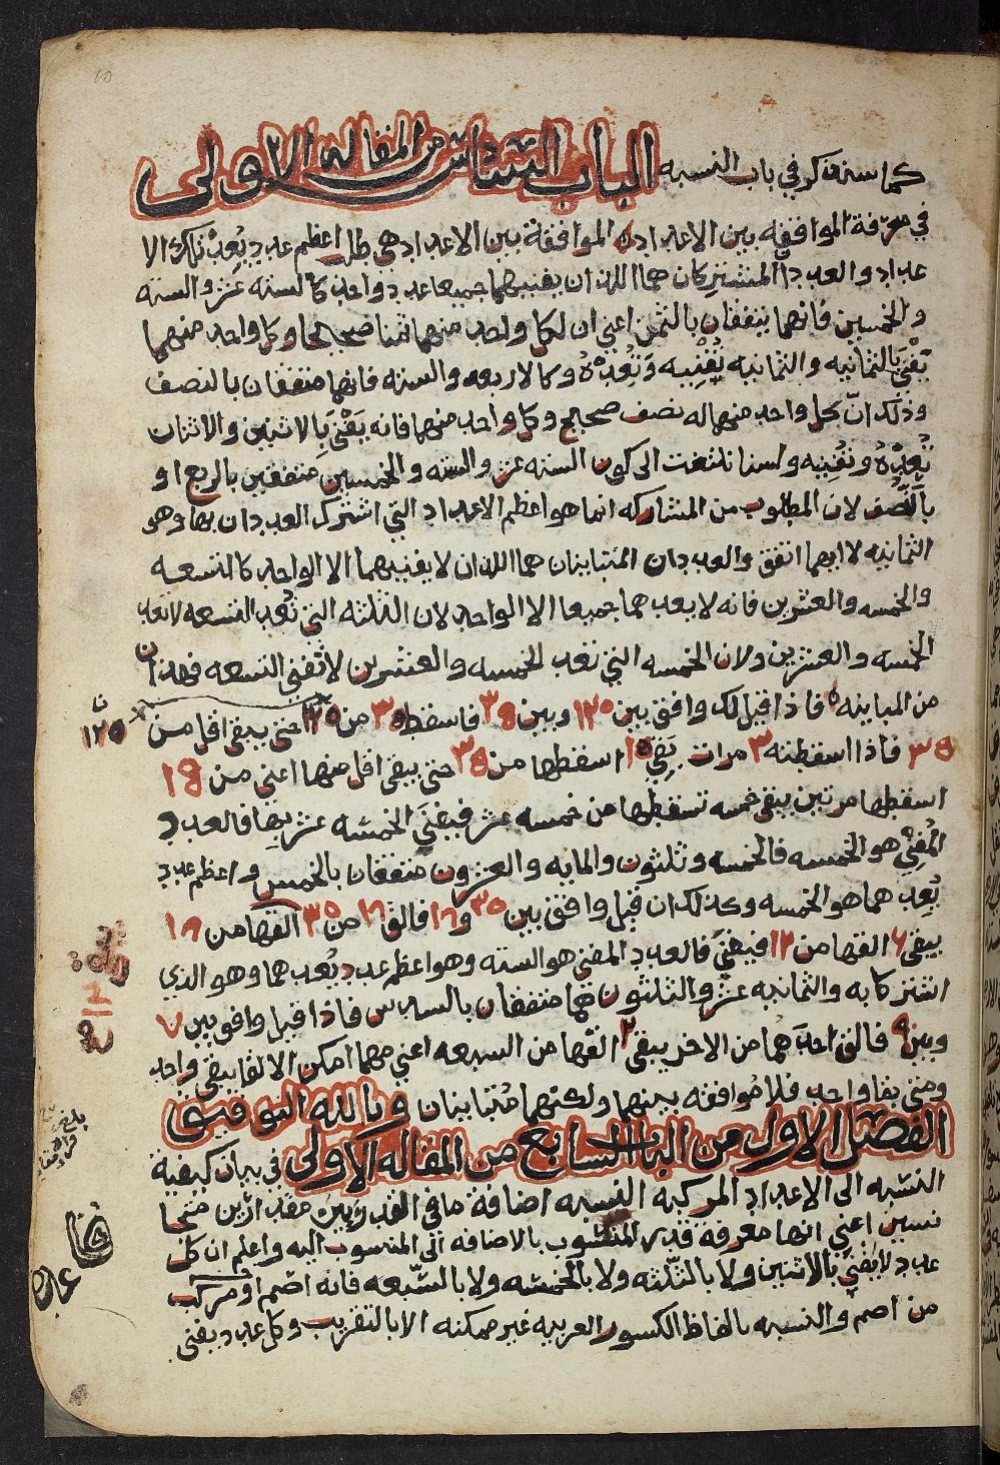 كما سنذكر في باب النسبه الباب السادس من المقاله الاولى
في معرفة الموافقه بين الاعداد الموافقة بين الاعداد هي طلب اعظم عدد يُعدّ تلك الا
عداد والعددان المشتركان هما اللذان يفنيهما جميعا عدد واحد كالسته عشر والسته
والخمسين فانهما يتفقان بالثمن اعني ان لكل واحد منهما ثمنا صحيحا وكل واحد منهما
يَفْنَى بالثمانيه والثمانيه تُفْنِيه وَتَعُدّهُ وكالاربعه والسته فانهما متفقان بالنصف
وذلك انّ كل واحد منهما له نصف صحيح وكل واحد منهما فانه يَفْنَى بالاثنين والاثنان
تُعدّهُ وتفنيه ولسنا نلتفت الى كون السته عشر والسته والخمسين متفقين بالربع او
بالنّصف لان المطلوب من المشاركه انما هو اعظم الاعداد التي اشترك العددان بها وهو
الثمانيه لا ايهما اتفق والعددان المتباينان هما اللذان لا يفنيهما الا الواحد كالتسعه
والخمسه والعشرين فانه لا يعدهما جميعا الا الواحد لان الثلثه التي تُعد التسعه لا تعد
الخمسه والعشرين ولان الخمسه التي تعد الخمسه والعشرين لا تفني التسعه فهذان
من المباينه فاذا قيل لك وافق بين ١٢٥ وبين ٣٥ فاسقط ٣٥ من ١٢٥ حتى يبقى اقل من
١٢٥
٣٥ فاذا اسقطته ٣ مرات بَقِيَ اسقطها من ٣٥ حتى يبقى اقل منها اعني من
اسقطها مرتين يبقى خمسه تسقطها من خمسه عشر فيفنَى الخمسه عشر بها فالعدد
المُفنِي هو الخمسه فالخمسه وثلثون والمايه والعشرون متفقان بالخمس واعظم عدد
يُعدهما هو الخمسه وكذلك ان قيل وافق بين ٣٠ و فالق من ٣٠ القها من
يبقى ٦ القها من ١٢ فيفنَى فالعدد المفني هو السته وهو اعظم عدد يُعدهما وهو الذي
اشتركا به والثمانيه عشر والثلثون هما متفقان بالسدس فاذا قيل وافق بين ٧
وبين ٩ فالق احدَهما من الاخر يبقى ٢ القها من السبعه اعني مهما امكن الالقا يبقى واحد
ومتى بقا واحد فلا مُوافقه بينهما ولكنهما مُتباينان وبالله التوفيق
الفصل الاول من الباب السابع من المقاله الاولى في بيان كيفية
النسبه الى الاعداد المركبه النسبه اضافة ما في القدر بين مقدارين متجا
نسين اعني انها معرفة قدر المنسوب بالاضافه الى المنسوب اليه واعلم ان كل
عدد لا يَفْنَى بالاثنين ولا بالثلثه ولا بالخمسه ولا بالسّبعه فانه اصّم او مركب
من اصم والنسبه بالفاظ الكسور العربيه غير ممكنه الا بالتقريب وكل عدد يفنى